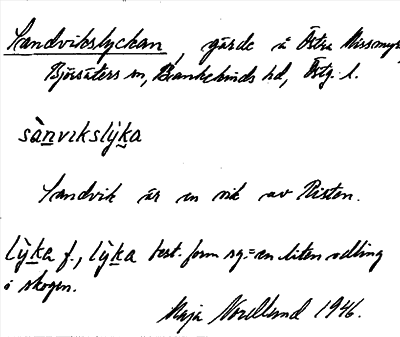 Sandvikslyckan, gärde å Östra Missmyra,
Björsäters sn, Bankekinds hd, Östg. l.
sànvikslỳka
Sandvik är en vik av Risten.
lỳka f., lỳka best. form sg. = en liten odling
i skogen.
Maja Nordlund 1946.